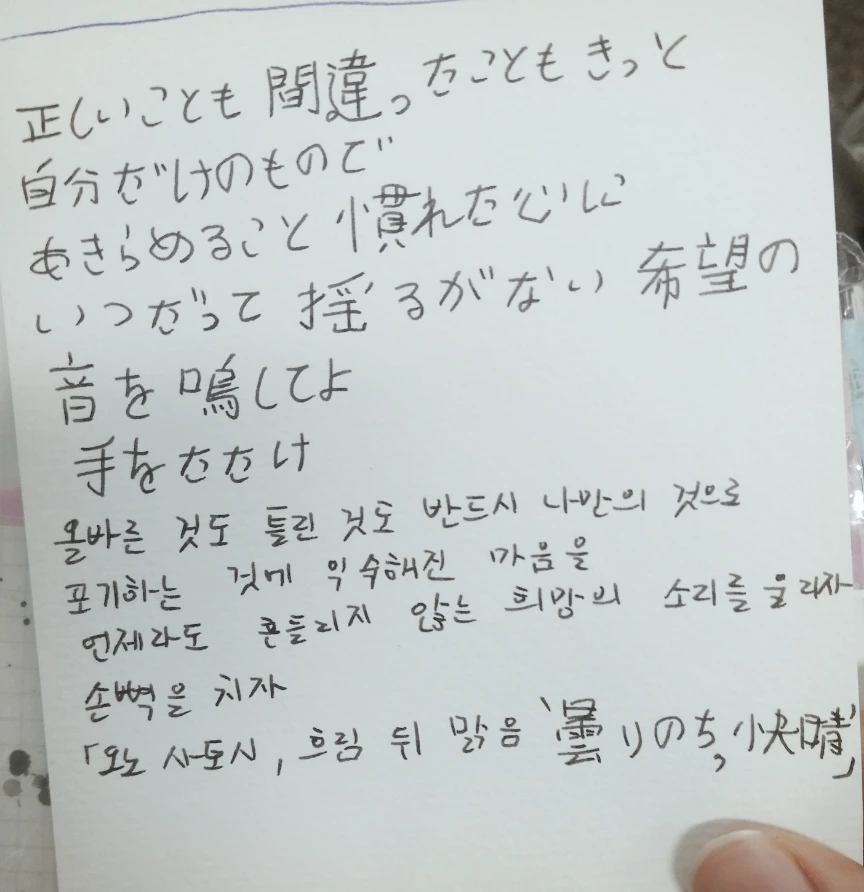 正しいことも 間違ったことも きっと
自分だけのもので
あきらめること 慣れた心に
いつだって 揺るがない 希望の
音を 鳴してよ
手をたたけ
올바른 것도 틀린 것도 반드시 나만의 것으로
포기하는 것에 익숙해진 마음을
언제라도 흔들리지 않는 희망의 소리를 울리자
손뼉을 치자
「오노 사토시, 흐림 뒤 맑음 '曇りのち, 快晴'」